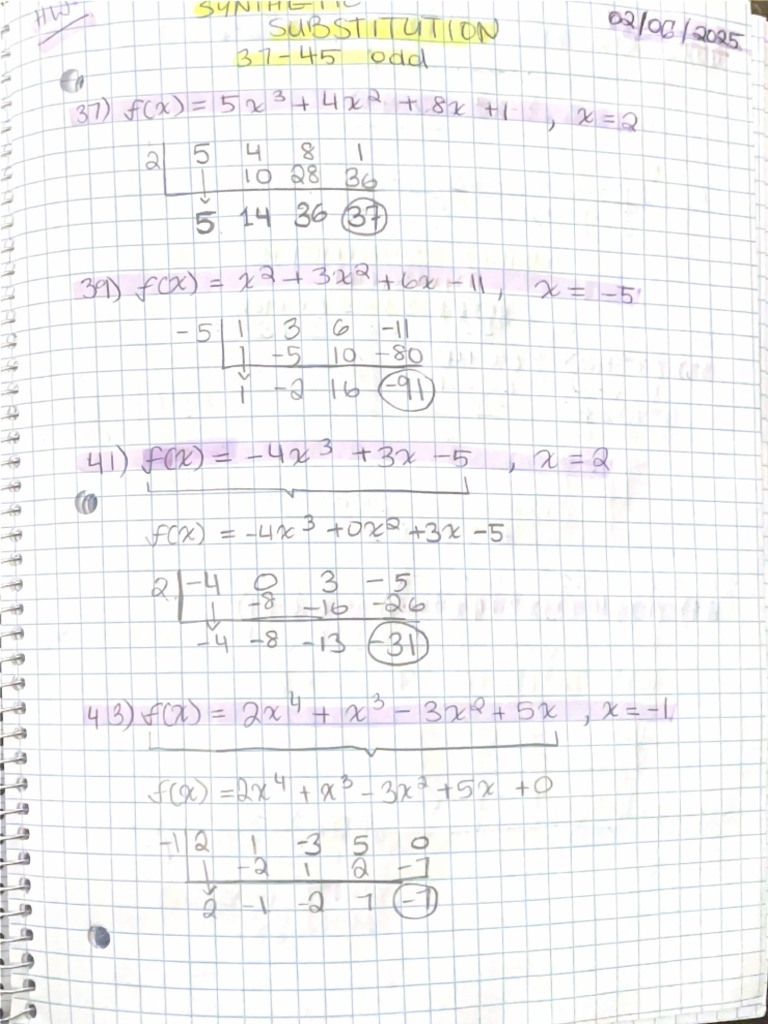 HW
SYNTHETIC
SUBSTITUTION
02/06/2025
37-45 odd
37) f(x) = 5x³ + 4x² + 8x +1 , x=2
2 5 4 8 1
10 28 36
5 14 36 37
39) f(x) = x2 + 3x² + 6x - 11, x = -5
-5 1 3 6 -11
-5 10 -80
1 -2 16 -91
41) f(x) = -4x³ +3x -5 , x=2
f(x) = -4x³ +0x² +3x -5
2 -4 0 3 -5
-8 -16 -26
-4 -8 -13 -31
43) f(x) = 2x⁴ + x³ - 3x² + 5x , x=-1
f(x) =2x⁴ + x³ - 3x² +5x +0
-1 2 1 -3 5 0
-2 1 2 -7
2 -1 -2 7 -7